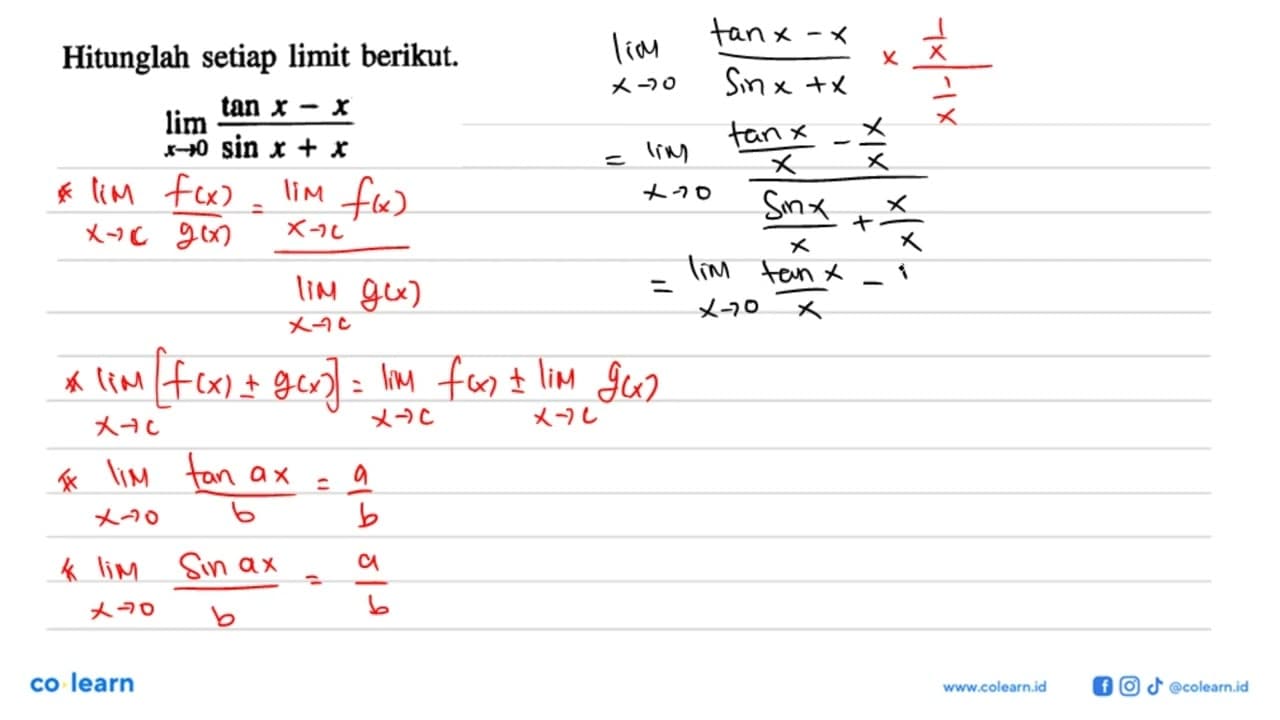 Hitunglah setiap limit berikut.
lim x→0 (tan x - x)/(sin x + x)
* lim x→c f(x)/g(x) = lim x→c f(x) / lim x→c g(x)
* lim x→c [f(x) ± g(x)] = lim x→c f(x) ± lim x→c g(x)
* lim x→0 tan ax / b = a/b
* lim x→0 sin ax / b = a/b
lim x→0 (tan x - x)/(sin x + x) × (1/x)/(1/x)
= lim x→0 (tan x/x - x/x)/(sin x/x + x/x)
= lim x→0 tan x/x -
co learn
www.colearn.id
@colearn.id